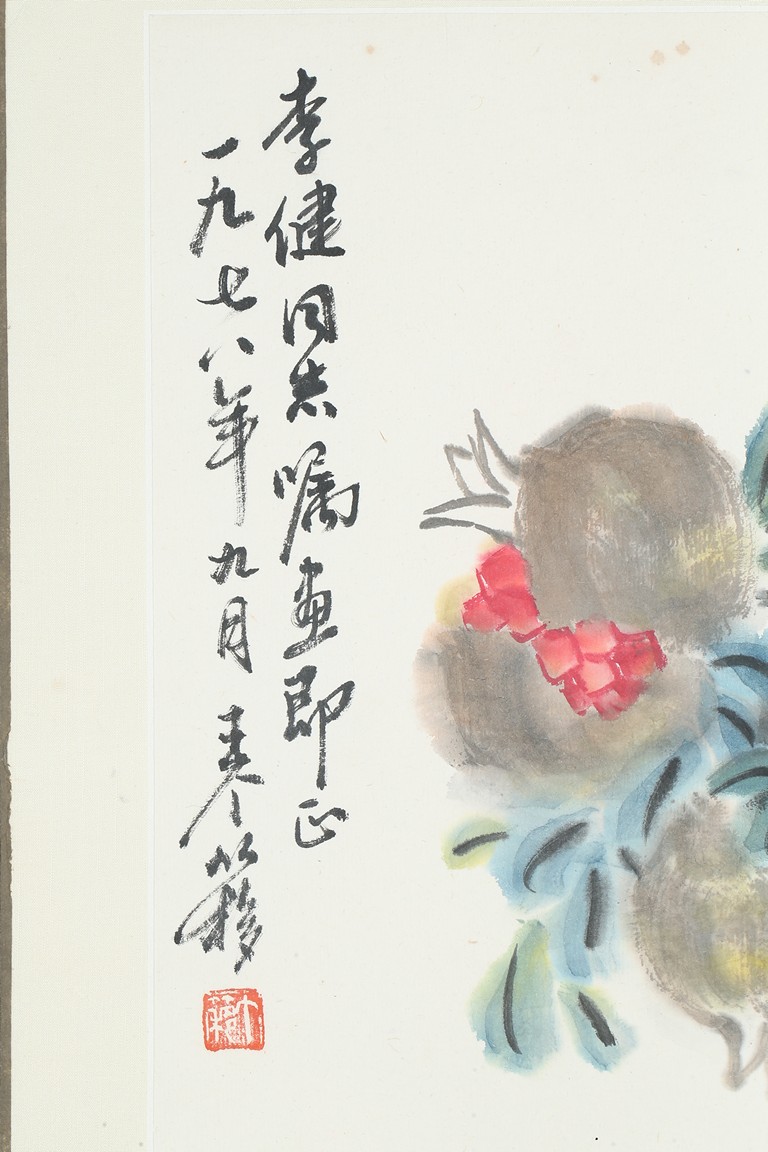 李健同志嘱画即正
一九七八年九月王个簃